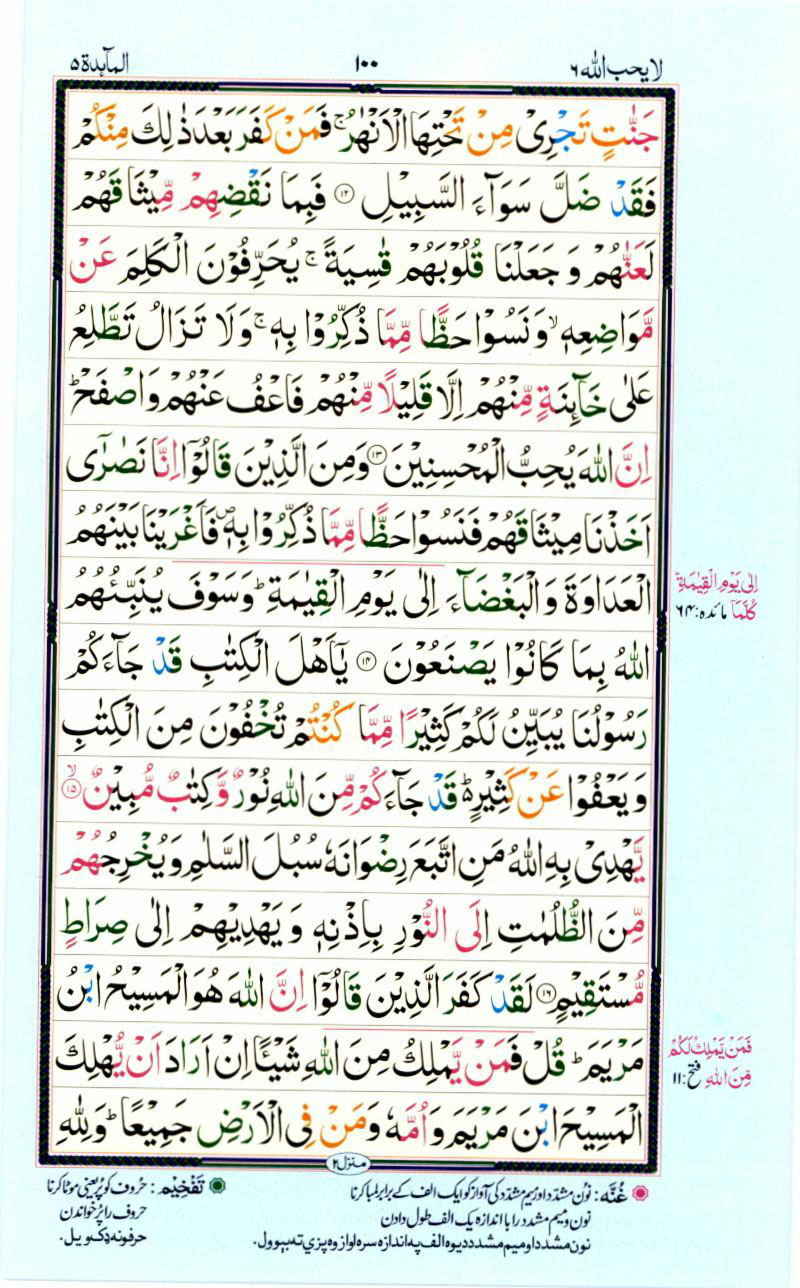 لا یحب اللہ ۶
۱۰۰
المآىِٕدة ۵
جَنّٰتٍ تَجْرِیْ مِنْ تَحْتِهَا الْاَنْهٰرُ ۚ فَمَنْ كَفَرَ بَعْدَ ذٰلِكَ مِنْكُمْ
فَقَدْ ضَلَّ سَوَآءَ السَّبِیْلِ ۝۱۲ فَبِمَا نَقْضِهِمْ مِّیْثَاقَهُمْ
لَعَنّٰهُمْ وَ جَعَلْنَا قُلُوْبَهُمْ قٰسِیَةً ۚ یُحَرِّفُوْنَ الْكَلِمَ عَنْ
مَّوَاضِعِهٖ ۙ وَ نَسُوْا حَظًّا مِّمَّا ذُكِّرُوْا بِهٖ ۚ وَ لَا تَزَالُ تَطَّلِعُ
عَلٰی خَآىِٕنَةٍ مِّنْهُمْ اِلَّا قَلِیْلًا مِّنْهُمْ فَاعْفُ عَنْهُمْ وَ اصْفَحْ ؕ
اِنَّ اللّٰهَ یُحِبُّ الْمُحْسِنِیْنَ ۝۱۳ وَ مِنَ الَّذِیْنَ قَالُوْۤا اِنَّا نَصٰرٰۤی
اَخَذْنَا مِیْثَاقَهُمْ فَنَسُوْا حَظًّا مِّمَّا ذُكِّرُوْا بِهٖ ۪ فَاَغْرَیْنَا بَیْنَهُمُ
الْعَدَاوَةَ وَ الْبَغْضَآءَ اِلٰی یَوْمِ الْقِیٰمَةِ ؕ وَ سَوْفَ یُنَبِّئُهُمُ
اللّٰهُ بِمَا كَانُوْا یَصْنَعُوْنَ ۝۱۴ یٰۤاَهْلَ الْكِتٰبِ قَدْ جَآءَكُمْ
رَسُوْلُنَا یُبَیِّنُ لَكُمْ كَثِیْرًا مِّمَّا كُنْتُمْ تُخْفُوْنَ مِنَ الْكِتٰبِ
وَ یَعْفُوْا عَنْ كَثِیْرٍ ؕ۬ قَدْ جَآءَكُمْ مِّنَ اللّٰهِ نُوْرٌ وَّ كِتٰبٌ مُّبِیْنٌ ۝۱۵ ۙ
یَّهْدِیْ بِهِ اللّٰهُ مَنِ اتَّبَعَ رِضْوَانَهٗ سُبُلَ السَّلٰمِ وَ یُخْرِجُهُمْ
مِّنَ الظُّلُمٰتِ اِلَی النُّوْرِ بِاِذْنِهٖ وَ یَهْدِیْهِمْ اِلٰی صِرَاطٍ
مُّسْتَقِیْمٍ ۝۱۶ لَقَدْ كَفَرَ الَّذِیْنَ قَالُوْۤا اِنَّ اللّٰهَ هُوَ الْمَسِیْحُ ابْنُ
مَرْیَمَ ؕ قُلْ فَمَنْ یَّمْلِكُ مِنَ اللّٰهِ شَیْـًٔا اِنْ اَرَادَ اَنْ یُّهْلِكَ
الْمَسِیْحَ ابْنَ مَرْیَمَ وَ اُمَّهٗ وَ مَنْ فِی الْاَرْضِ جَمِیْعًا ؕ وَ لِلّٰهِ
اِلٰی یَوْمِ الْقِیٰمَةِ ؕ
كُلَّمَاۤ مائدہ: ۶۴
فَمَنْ یَّمْلِكُ لَكُمْ
مِّنَ اللّٰهِ فتح: ۱۱
منزل ۲
غُنَّه: نون مشدد اور میم مشدد کی آواز کو ایک الف کے برابر لمبا کرنا
نون و میم مشدد را با اندازه یک الف طول دادن
نون مشدد او میم مشدد دیوه الف په اندازه سره اواز وه پزې ته بېوول.
تَفْخِیْم: حروف کو پُر یعنی موٹا کرنا
حروف را پر خواندن
حرفونه ډک ویل.